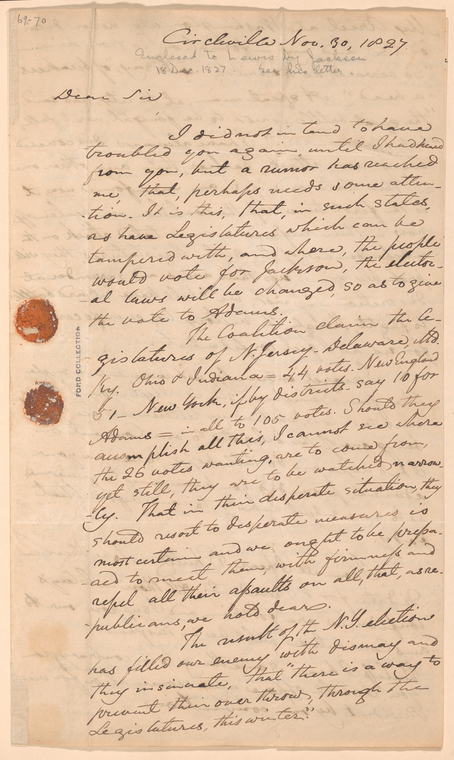 69-70
Circleville Nov. 30, 1827
Enclosed to Lewis by Jackson
18 Dec. 1827. See his letter
Dear Sir
I did not intend to have
troubled you again until I had heard
from you, but a rumor has reached
me, that, perhaps needs some atten-
-tion. It is this, that, in such states,
as have Legislatures which can be
tampered with, and where, the people
would vote for Jackson, the elector-
al laws will be changed, so as to give
the vote to Adams.
The Coalition claim the Le-
gislatures of N. Jersey - Delaware, Md.
Ky. Ohio & Indiana = 44 votes. New England
51 - New York, if by districts say 10 for
Adams = in all to 105 votes. Should they
accomplish all this, I cannot see where
the 26 votes wanting, are to come from,
yet still, they are to be watched narrow-
-ly. That in their desperate situation, they
should resort to desperate measures is
most certain and we ought to be prepa-
-red to meet them, with firmness and
repel all their assaults on all, that, as re-
-publicans, we hold dear.
The result of the N.Y. elections
has filled our enemy with dismay and
they insinuate, that "there is a way to
prevent their over throw, through the
Legislatures, this winter."
FORD COLLECTION